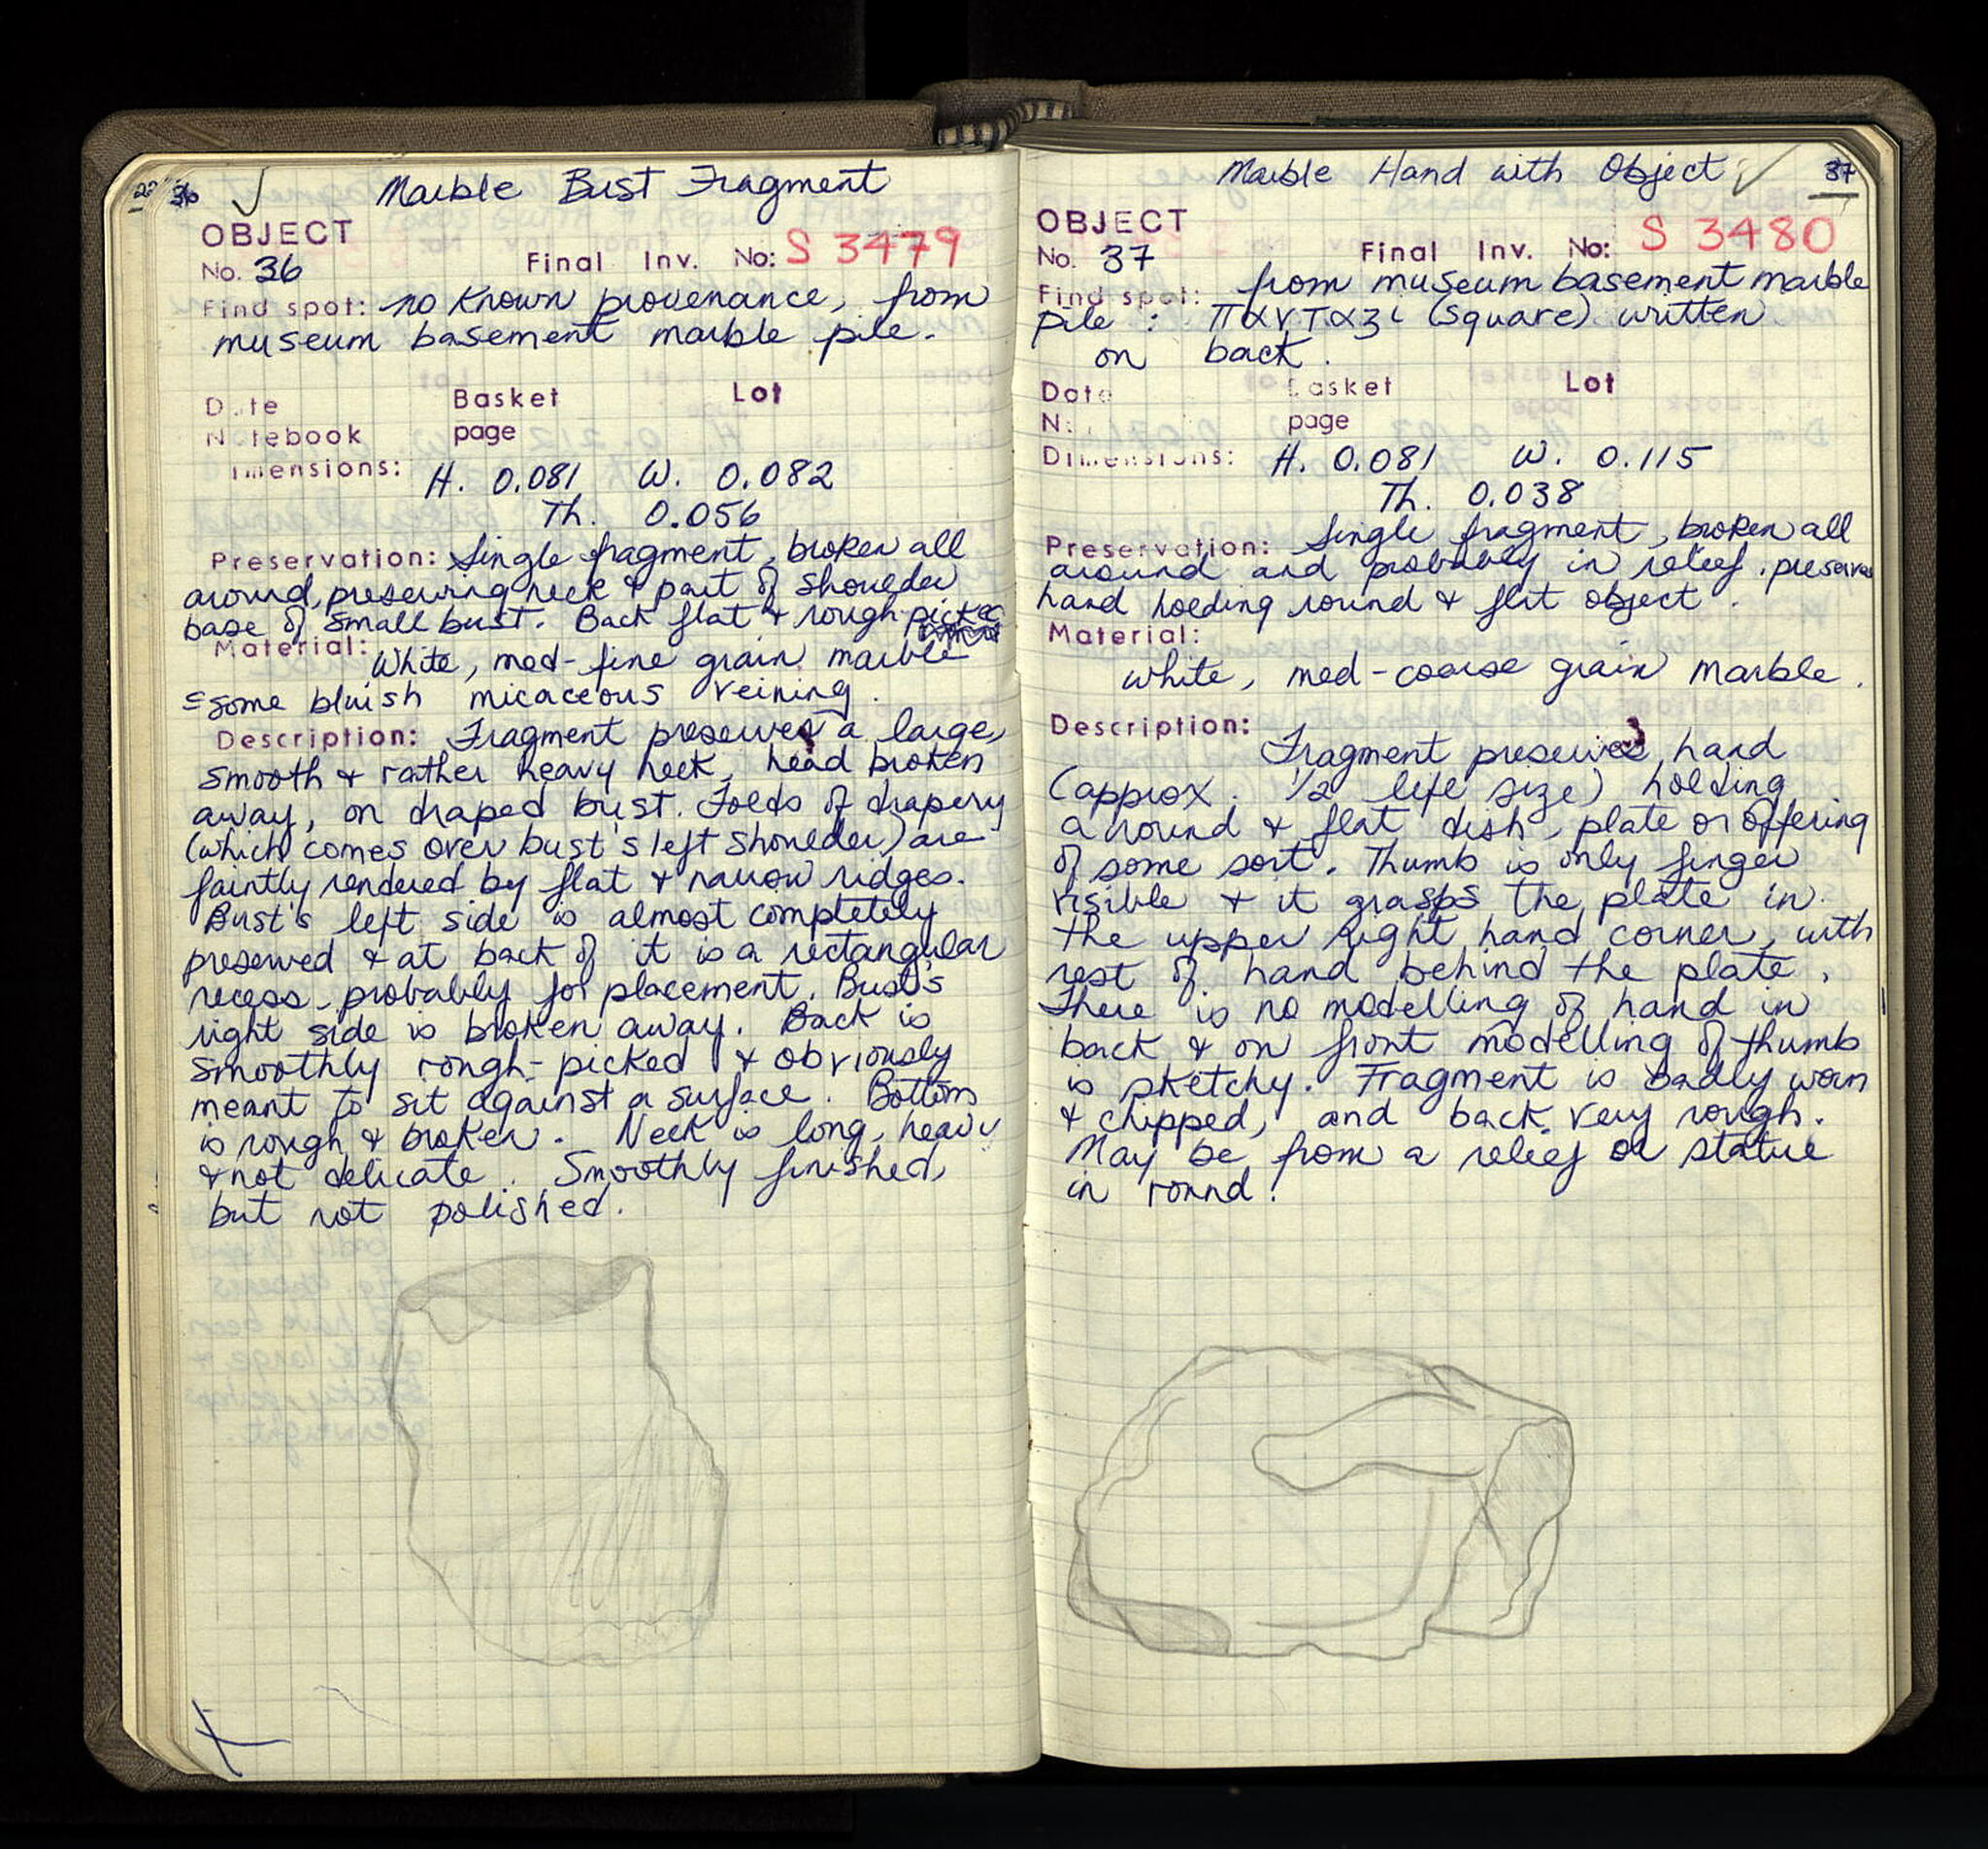 22 36 ✓ Marble Bust Fragment
OBJECT
No. 36 Final Inv. No: S 3479
Find spot: no known provenance, from
museum basement marble pile.
Date Basket Lot
Notebook page
Dimensions: H. 0.081 W. 0.082
Th. 0.056
Preservation: Single fragment, broken all
around, preserving neck & part of shoulder
base of small bust. Back flat & rough-picked
Material: White, med-fine grain marble
some bluish micaceous veining.
Description: Fragment preserves a large,
smooth & rather heavy neck, head broken
away, on draped bust. Folds of drapery
(which comes over bust's left shoulder) are
faintly rendered by flat & narrow ridges.
Bust's left side is almost completely
preserved & at back of it is a rectangular
recess, probably for placement. Bust's
right side is broken away. Back is
smoothly rough-picked & obviously
meant to sit against a surface. Bottom
is rough & broken. Neck is long, heavy
& not delicate. Smoothly finished,
but not polished.
Marble Hand with Object ✓ 37
OBJECT
No. 37 Final Inv. No: S 3480
Find spot: from museum basement marble
pile: πανταζί (Square) written
on back.
Date Basket Lot
N page
Dimensions: H. 0.081 W. 0.115
Th. 0.038
Preservation: Single fragment, broken all
around and probably in relief, preserves
hand holding round & flat object.
Material:
white, med-coarse grain marble.
Description:
Fragment preserves hand
(approx. 1/2 life size) holding
a round & flat dish, plate or offering
of some sort. Thumb is only finger
visible & it grasps the plate in
the upper right hand corner, with
rest of hand behind the plate.
There is no modelling of hand in
back & on front modelling of thumb
is sketchy. Fragment is badly worn
& chipped, and back very rough.
May be from a relief or statue
in round?